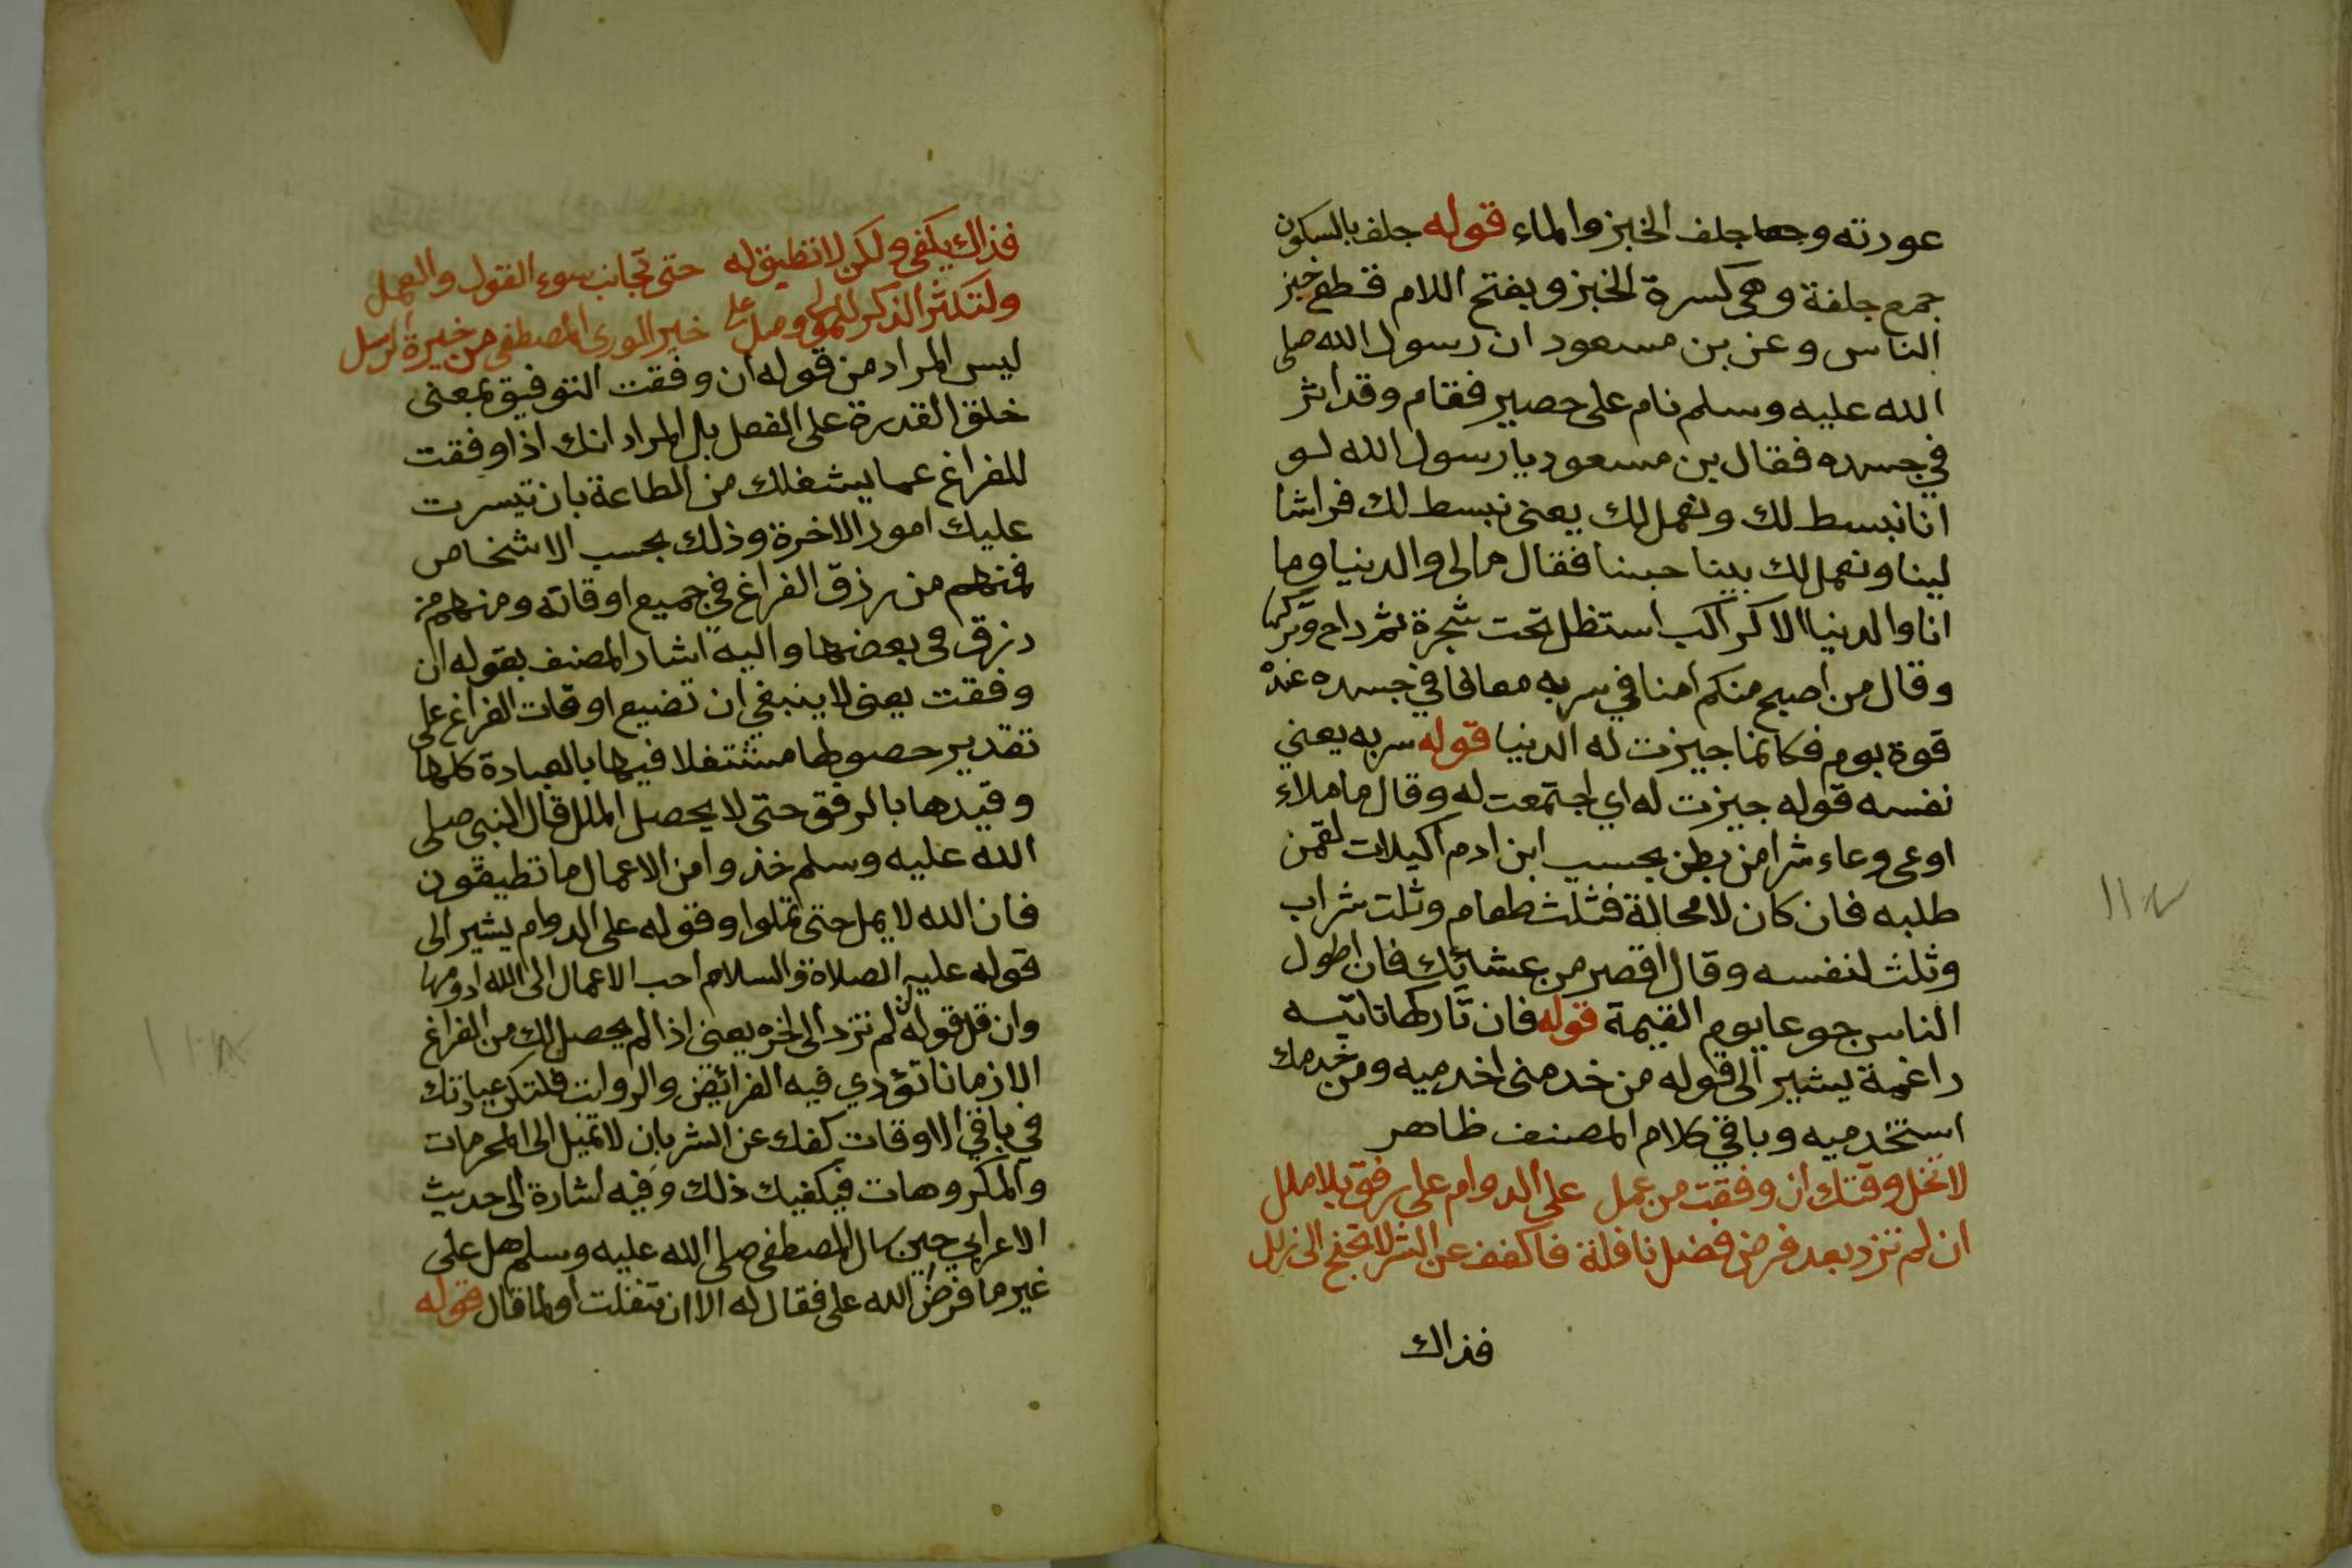 عورته وجعا جلف الخبز والماء قوله جلف بالسكون
جمع جلفة وهي كسرة الخبز وبفتح اللام قطع خبز
الناس وعن بن مسعود ان رسول الله صلى
الله عليه وسلم نام على حصير فقام وقد اثر
في جسده فقال بن مسعود يا رسول الله لو
انا نبسط لك ونعمل لك يعني نبسط لك فراشا
لينا ونعمل لك بيتا حسنا فقال ما لى والدنيا وما
انا والدنيا الا كراكب استظل تحت شجرة ثم راح وتركها
وقال من اصبح منكم امنا في سربه معافا في جسده عنده
قوة يوم فكانما حيزت له الدنيا قوله سربه يعني
نفسه قوله حيزت له اي اجتمعت له وقال ما ملاء
اوعى وعاء شرا من بطن بحسب ابن ادم اكيلات لقمن
طلبه فان كان لا محالة فثلث طعام وثلث شراب
وثلث لنفسه وقال اقصر من عشائك فان اطول
الناس جوعا يوم القيمة قوله فان تاركها تاتيه
راغمة يشير الى قوله من خدمنى اخدميه ومن خدمك
استخدميه وباقي كلام المصنف ظاهر
لا تخل وقتك ان وفقت من عمل على الدوام على رفق بلا ملل
ان لم تزد بعد فرض فضل نافلة فاكفف عن الشر لا تجنح الى زلل
فذاك
فذاك يكفي ولكن لا تطيق له حتى تجانب سوء القول والعمل
ولتكثر الذكر للمولى وصل على خير الورى المصطفى من خيرة الرسل
ليس المراد من قوله ان وفقت التوفيق بمعنى
خلق القدرة على الفعل بل المراد انك اذا وفقت
للفراغ عما يشغلك من الطاعة بان تيسرت
عليك امور الاخرة وذلك بحسب الاشخاص
فمنهم من رزق الفراغ في جميع اوقاته ومنهم من
رزق في بعضها واليه اشار المصنف بقوله ان
وفقت يعني لا ينبغي ان تضيع اوقات الفراغ على
تقدير حصولها مشتغلا فيها بالعبادة كلها
وقيدها بالرفق حتى لا يحصل الملل قال النبي صلى
الله عليه وسلم خذوا من الاعمال ما تطيقون
فان الله لا يمل حتى تملوا وقوله على الدوام يشير الى
قوله عليه الصلاة والسلام احب الاعمال الى الله ادومها
وان قل قوله ان لم تزد الى اخره يعني اذا لم يحصل لك من الفراغ
الا زمانا تؤدي فيه الفرائض والرواتب فلتكن عبادتك
في باقي الاوقات كفك عن الشر بان لا تميل الى المحرمات
والمكروهات فيكفيك ذلك وفيه اشارة الى حديث
الاعرابي حين سال المصطفى صلى الله عليه وسلم هل على
غير ما فرض الله على فقال له الا ان تنفلت او لما قال قوله